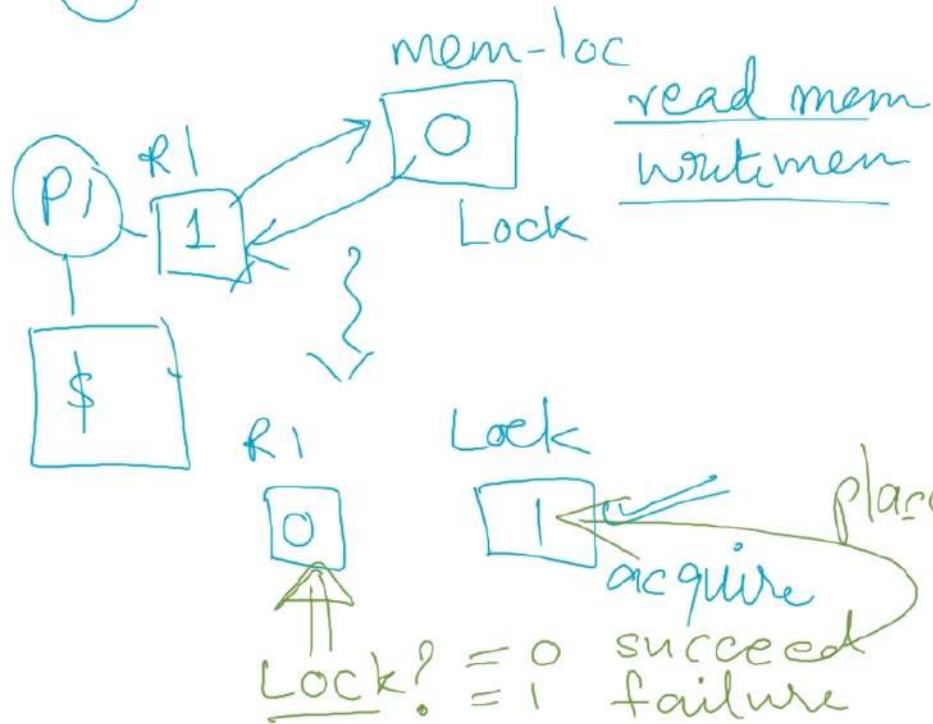 mem-loc
read mem
writemem
P1
R1
1
0
Lock
$
R1
Lock
0
1
acquire
Lock? = 0 succeed
= 1 failure